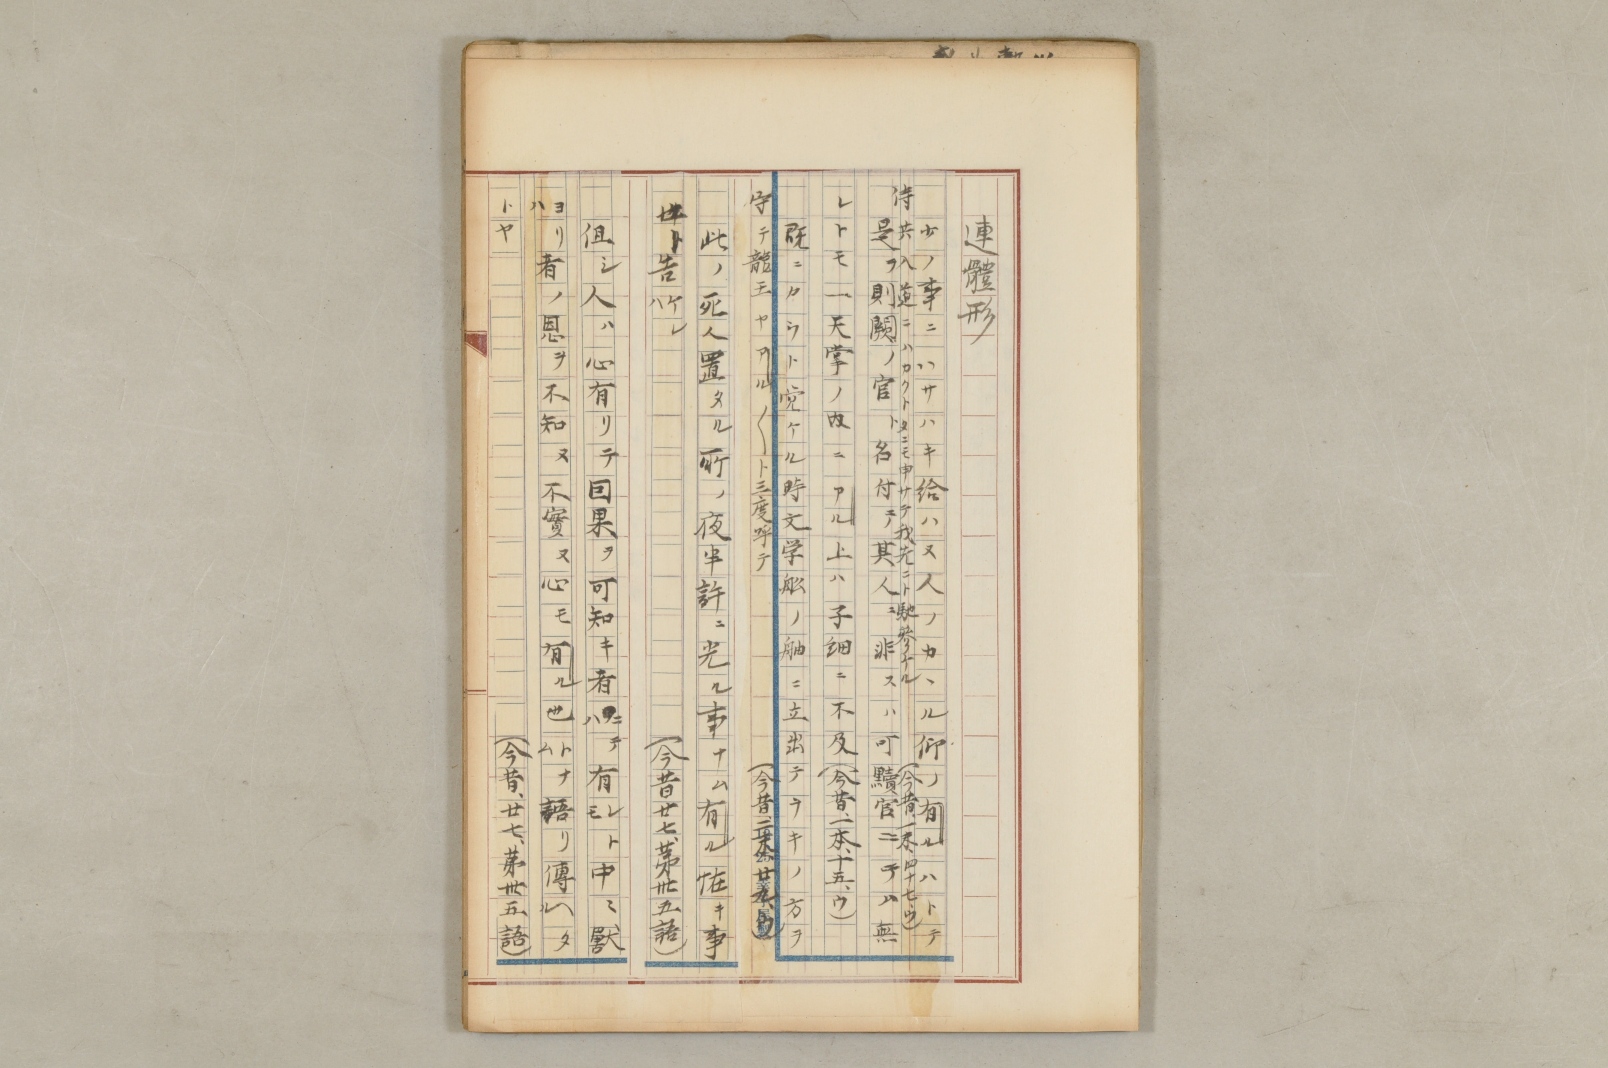 連體形
少ノ事ニハサハキ給ハヌ人ノカヽル仰ノ有ルハトテ
侍共入道ニハカクトタニモ申サテ我先ニト馳參ケル(今昔、一本、四十七、ウ)
是ヲ則闕ノ官ト名付テ其人ニ非スハ可黷官ニテハ無
レトモ一天掌ノ内ニアル上ハ子細ニ不及(今昔、一本、十五、ウ)
既ニカウト定ケル時文学舩ノ舳ニ立出テヲキノ方ヲ
守テ龍王ヤアル〱ト三度呼テ
此ノ死人置タル所ノ夜半許ニ光ル事ナム有ル恠キ事
也ト告ケレハ(今昔廿七、第卅五語)
但シ人ハ心有リテ因果ヲ可知キ者ニテハ有レトモ中〻獸
ヨリハ者ノ恩ヲ不知ヌ不實ヌ心モ有ル也トナム語リ傳ヘタル
トヤ(今昔、廿七、第卅五語)